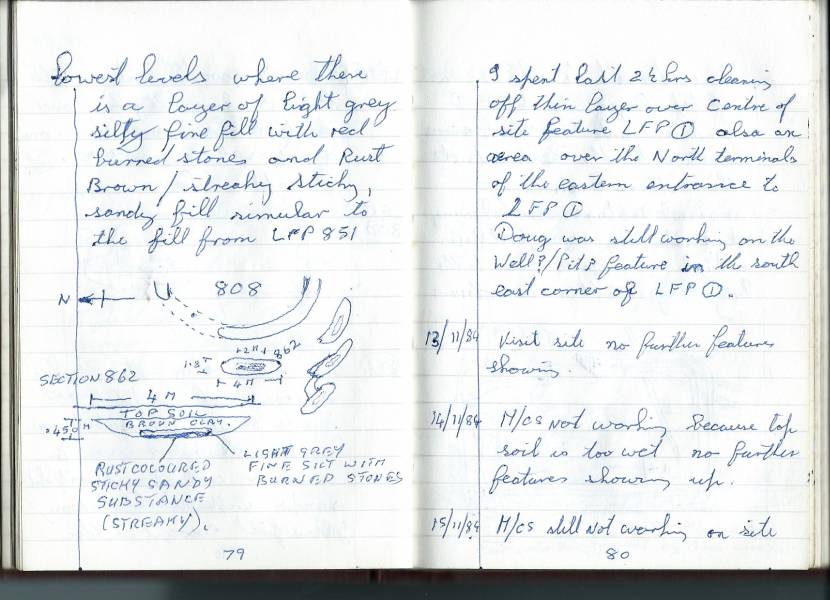 lowest levels where there
is a layer of light grey
silty fine fill with red
burned stones and Rust
Brown/streaky sticky,
sandy fill simular to
the fill from LFP 851
N
808
862
+2M+
1.8
4M
SECTION 862
4 M
TOP SOIL
BROWN CLAY.
.450 M
RUST COLOURED
STICKY SANDY
SUBSTANCE
(STREAKY).
LIGHT GREY
FINE SILT WITH
BURNED STONES
79
I spent last 2½ hrs cleaning
off thin layer over centre of
site feature LFP ① also an
area over the North terminals
of the eastern entrance to
LFP ①
Doug was still working on the
Well?/Pit? feature in the south
east corner of LFP ①.
13/11/84 Visit site no further features
showing.
14/11/84 M/cs Not working because top
soil is too wet no further
features showing up.
15/11/84 M/cs still Not working on site
80